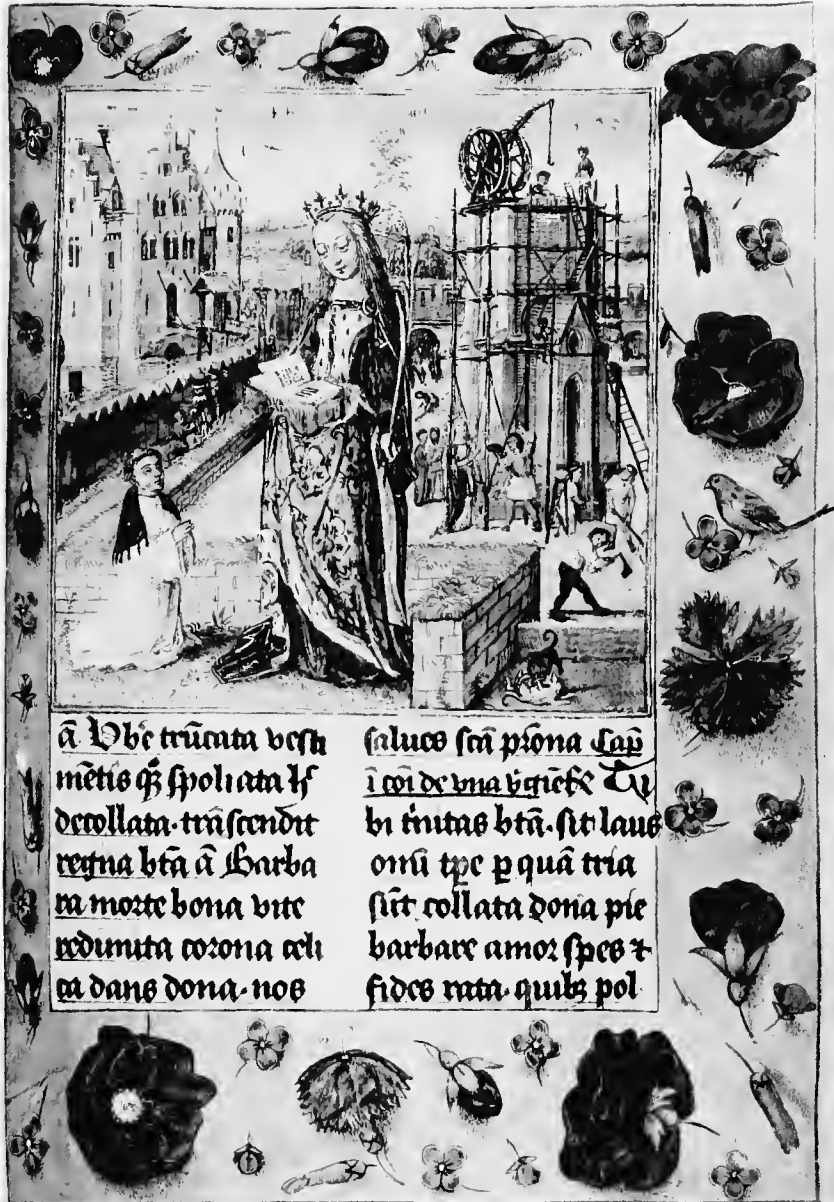 ā Vbe trūcata vesti
mētis qȝ spoliata
decollata· trāscendit
regna btā ā Barba
ra morte bona vite
redimita corona celi
ca dans dona· nos
salues scā prona Cap̄
ī coī de vna Tu
bi tr̄nitas btā· sit laus
om̄i tp̄e p quā tria
sūt collata dona pie
barbare amor spes ⁊
fides rata· quibȝ pol